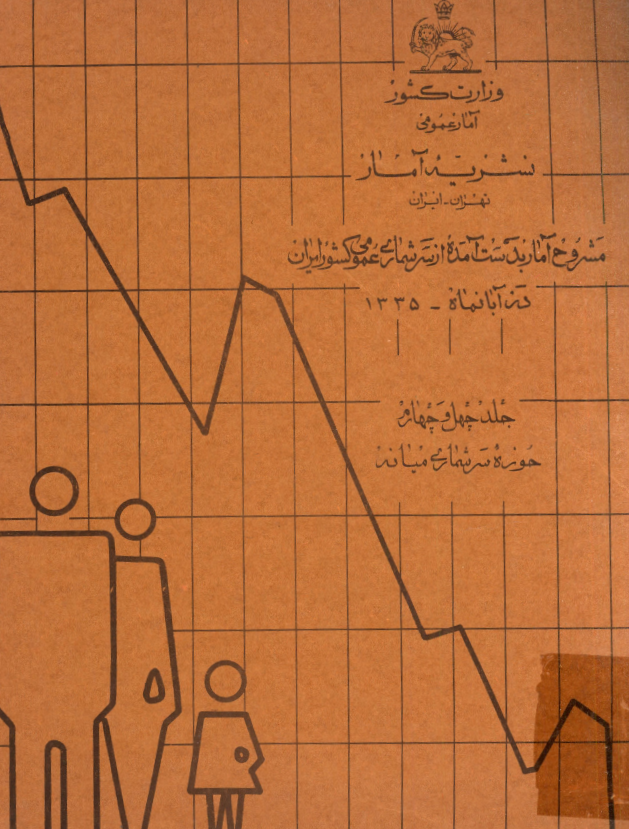 وزارت کشور
آمار عمومی
نشریه آمار
تهران - ایران
مشروح آمار بدست آمده از سرشماری عمومی کشور ایران
در آبانماه - ۱۳۳۵
جلد چهل و چهارم
حوزه سرشماری میانه